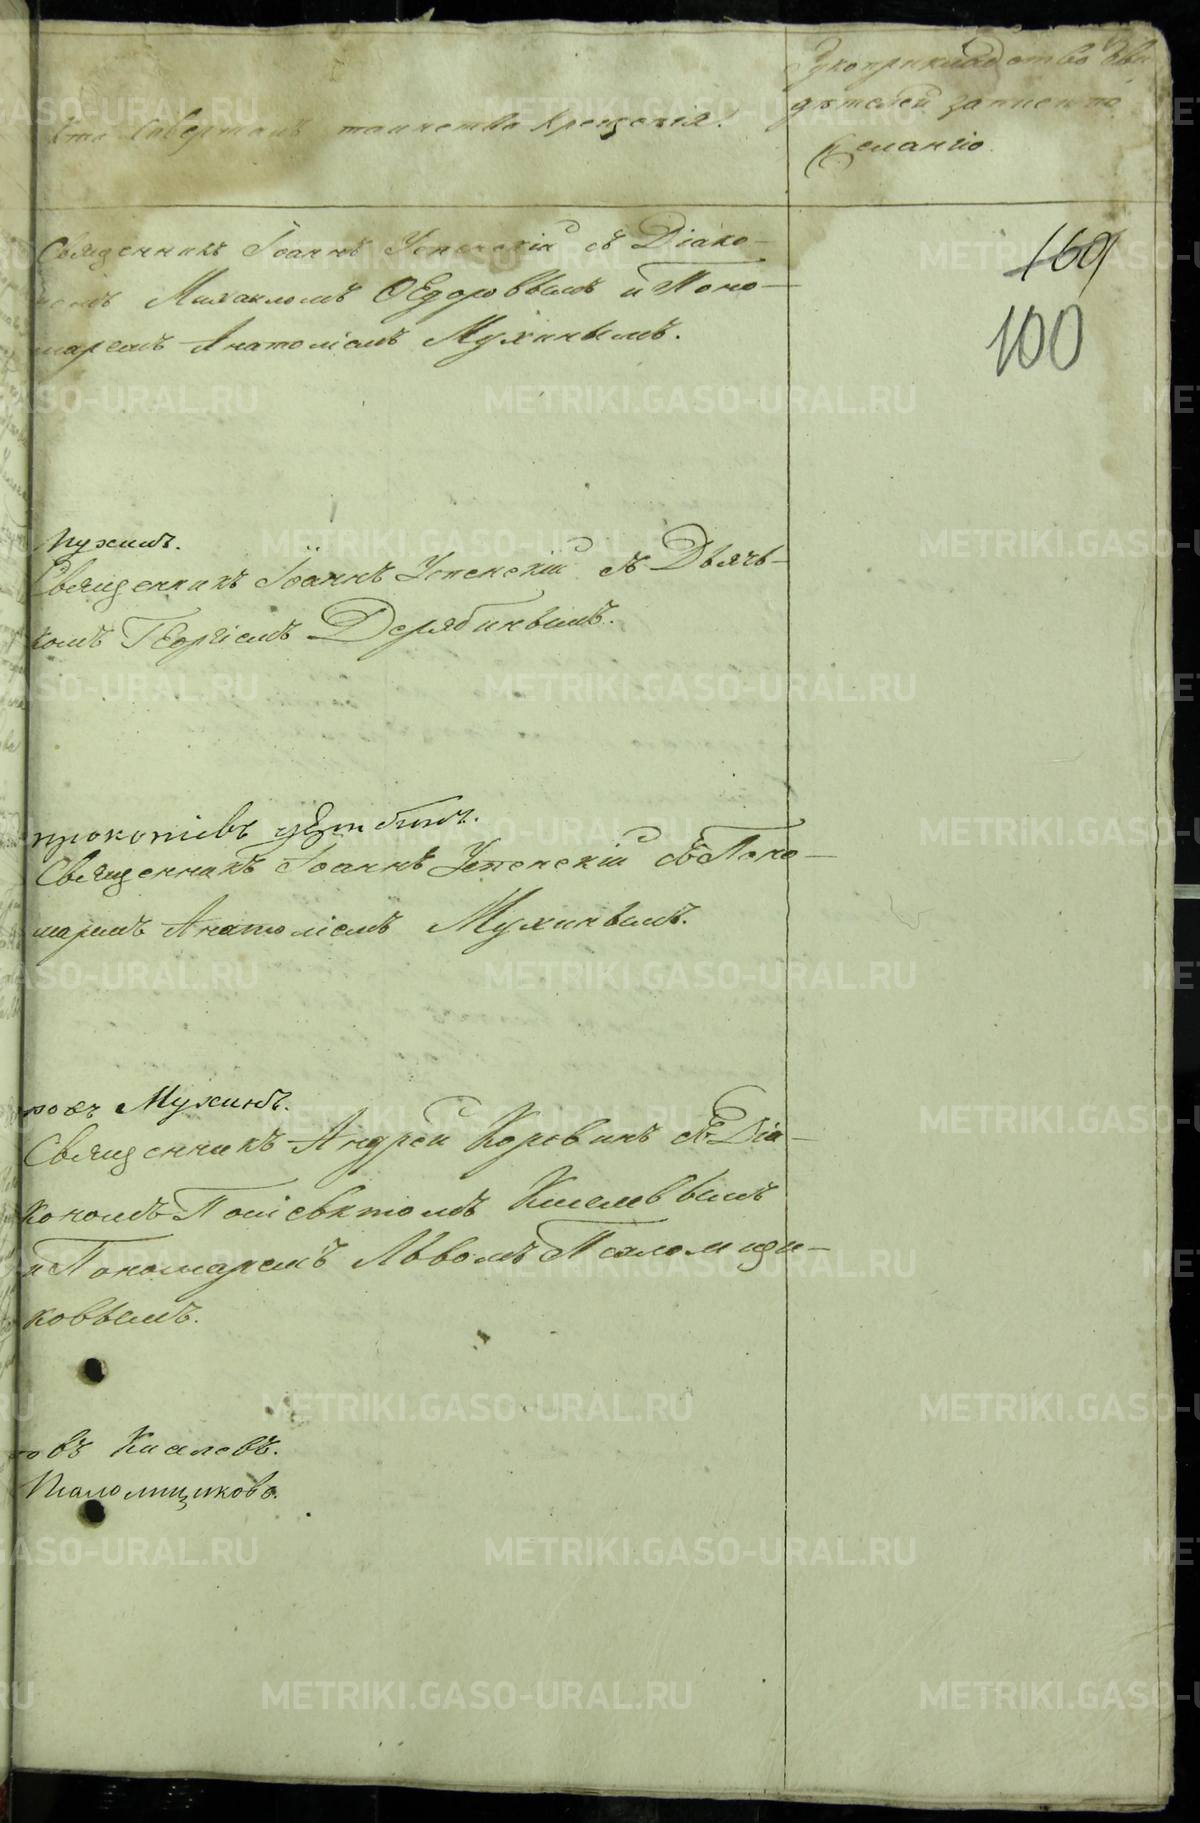 Кто совершалъ таинство крещенія?
Рукоприкладство сви
дѣтелей записи по
желанію.
169
100
Священникъ Іоаннъ Успенскій съ Діако-
номъ Михаиломъ Ѳедоровымъ и Поно-
маремъ Анатоліемъ Мухинымъ.
Мухинъ.
Священникъ Іоаннъ Успенскій съ Дьячь-
комъ Георгіемъ Дерябинымъ.
Священникъ Іоаннъ Успенскій съ Поно-
маремъ Анатоліемъ Мухинымъ.
Мухинъ.
Священникъ Андрей Коровинъ съ Діа-
кономъ Поліевктомъ Киселевымъ
и Пономаремъ Львомъ Псаломщи-
ковымъ.
Киселевъ.
Псаломщиковъ.
METRIKI.GASO-URAL.RU